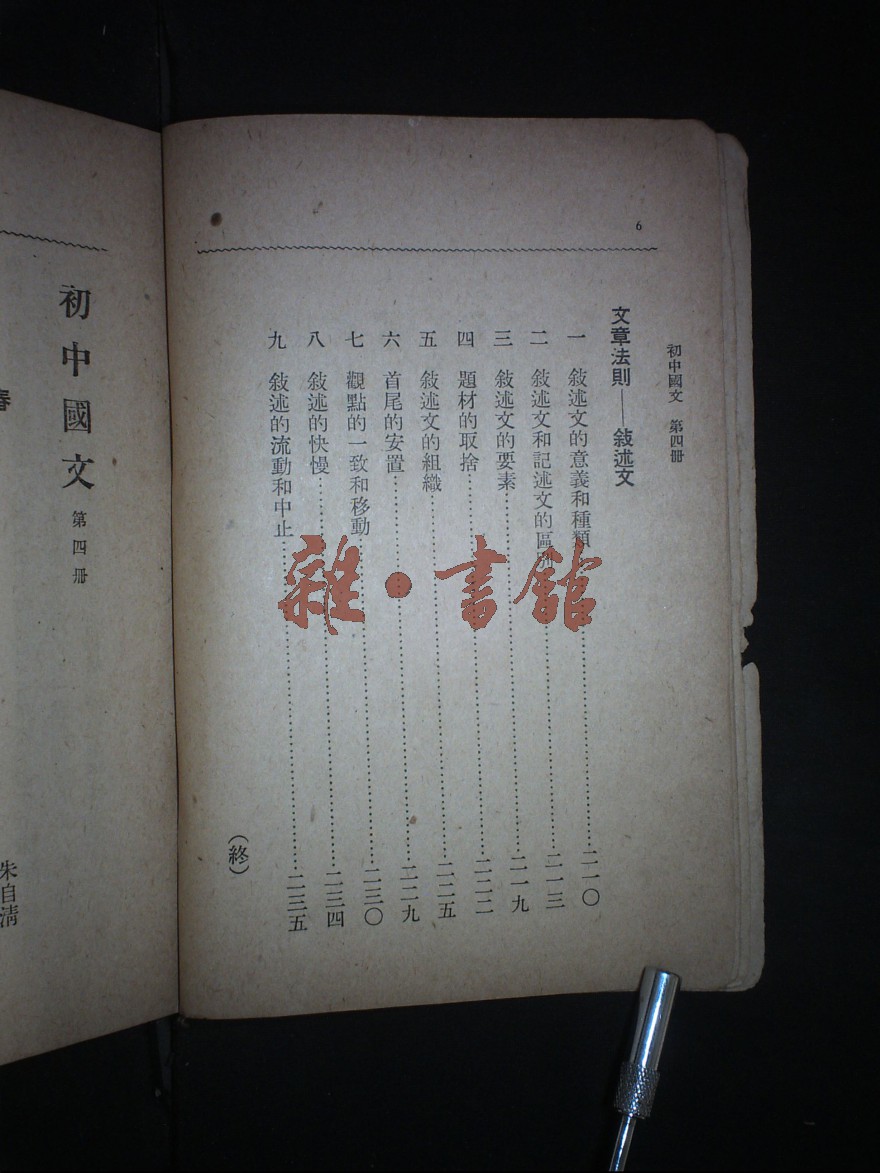 6
初中國文 第四册
文章法則——敍述文
一 敍述文的意義和種類……二一〇
二 敍述文和記述文的區別……二一三
三 敍述文的要素……二一九
四 題材的取捨……二二二
五 敍述文的組織……二二五
六 首尾的安置……二二九
七 觀點的一致和移動……二三〇
八 敍述的快慢……二三四
九 敍述的流動和中止……二三五
(終)
初中國文 第四册
春
朱自清
雜·書館